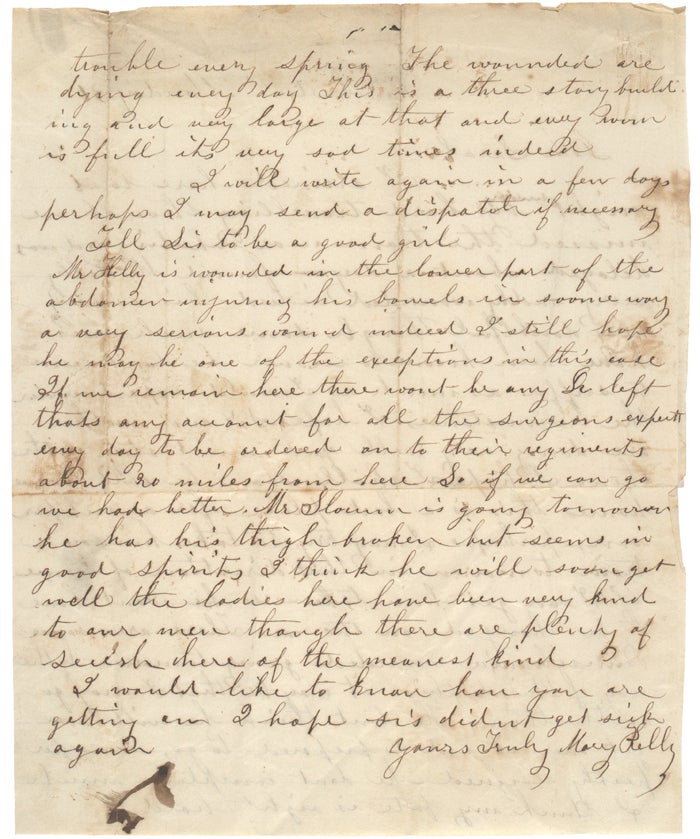 trouble every spring The wounded are
dying every day This is a three story build-
ing and very large at that and every room
is full its very sad times indeed
I will write again in a few days
perhaps I may send a dispatch if necessary
Tell Sis to be a good girl
Mr Kelly is wounded in the lower part of the
abdomen injuring his bowels in soome way
a very serious wound indeed I still hope
he may be one of the exceptions in this case
If we remain here there wont be any Dr left
thats any account for all the surgeons expect
every day to be ordered on to their regiments
about 20 miles from here So if we can go
we had better. Mr Slocum is going tomorrow
he has his thigh broken but seems in
good spirits I think he will soon get
well the ladies here have been very kind
to our men though there are plenty of
secesh here of the meanest kind
I would like to know how you are
getting on I hope sis didnt get sick
again Yours Truly Mary Kelly